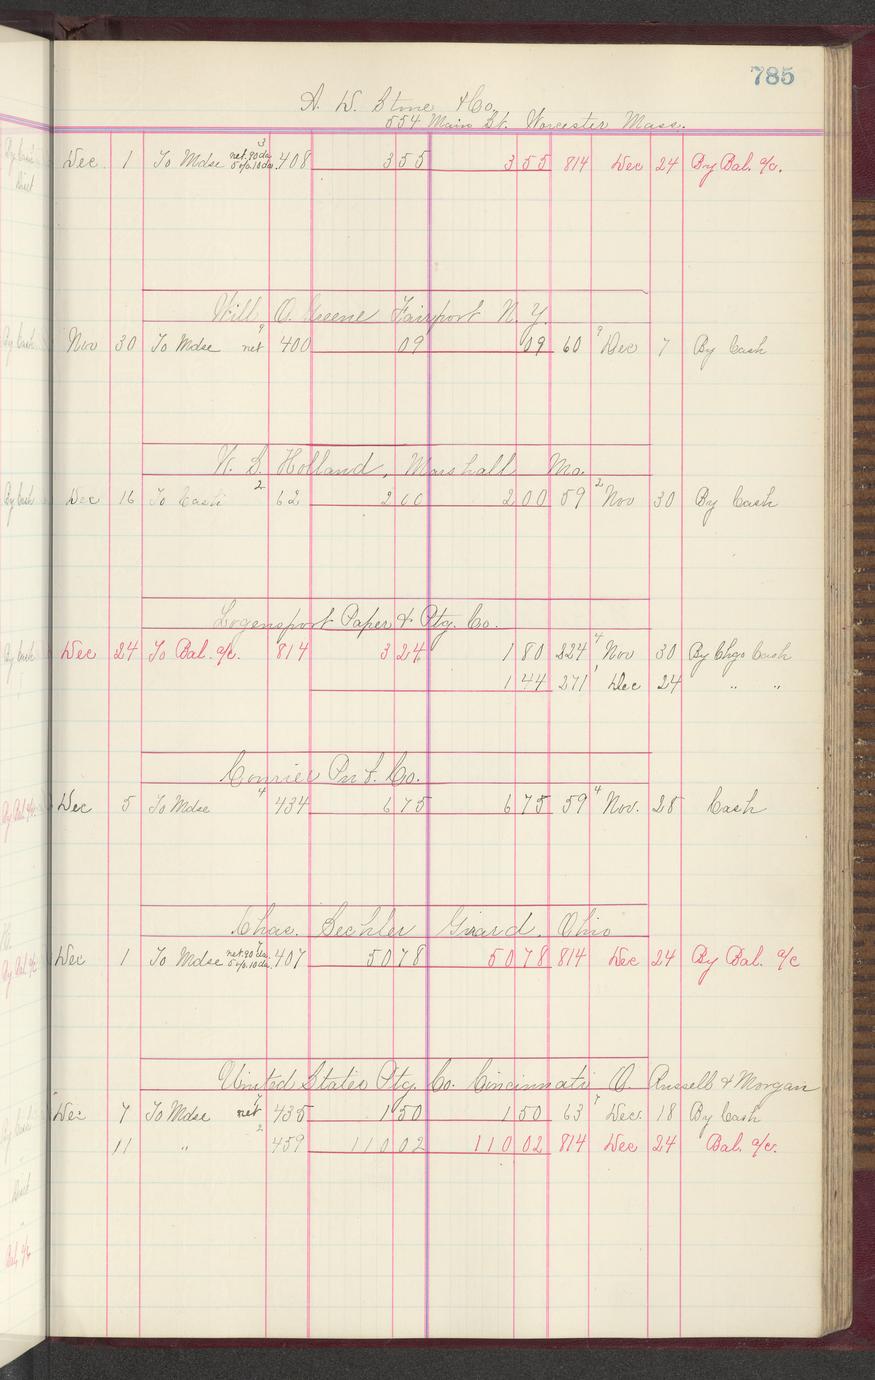 785
A. W. Stone & Co.
554 Main St. Worcester Mass.
Dec 1 To Mdse net 90 ds 5% 10 ds. 3 408 3 55 3 55 814 Dec 24 By Bal. a/c.
Will O. Greene Fairport N. Y.
Nov 30 To Mdse net 9 400 09 09 60 9 Dec 7 By Cash
W. S. Holland, Marshall Mo.
Dec 16 To Cash 2 62 2 00 2 00 59 2 Nov 30 By Cash
Logensport Paper & Ptg. Co.
Dec 24 To Bal. a/c. 814 3 24 1 80 224 4 Nov 30 By Chgo Cash
1 44 271 1 Dec 24 " "
Courier Ptg. Co.
Dec 5 To Mdse 4 434 6 75 6 75 59 4 Nov. 28 Cash
Chas. Bechler Girard, Ohio
Dec 1 To Mdse net 90 ds. 5% 10 ds. 7 407 50 78 50 78 814 Dec 24 By Bal. a/c
United States Ptg. Co. Cincinnati O. Russell & Morgan
Dec 7 To Mdse net 7 435 1 50 1 50 63 7 Dec. 18 By Cash
11 " 2 459 110 02 110 02 814 Dec 24 Bal. a/c.